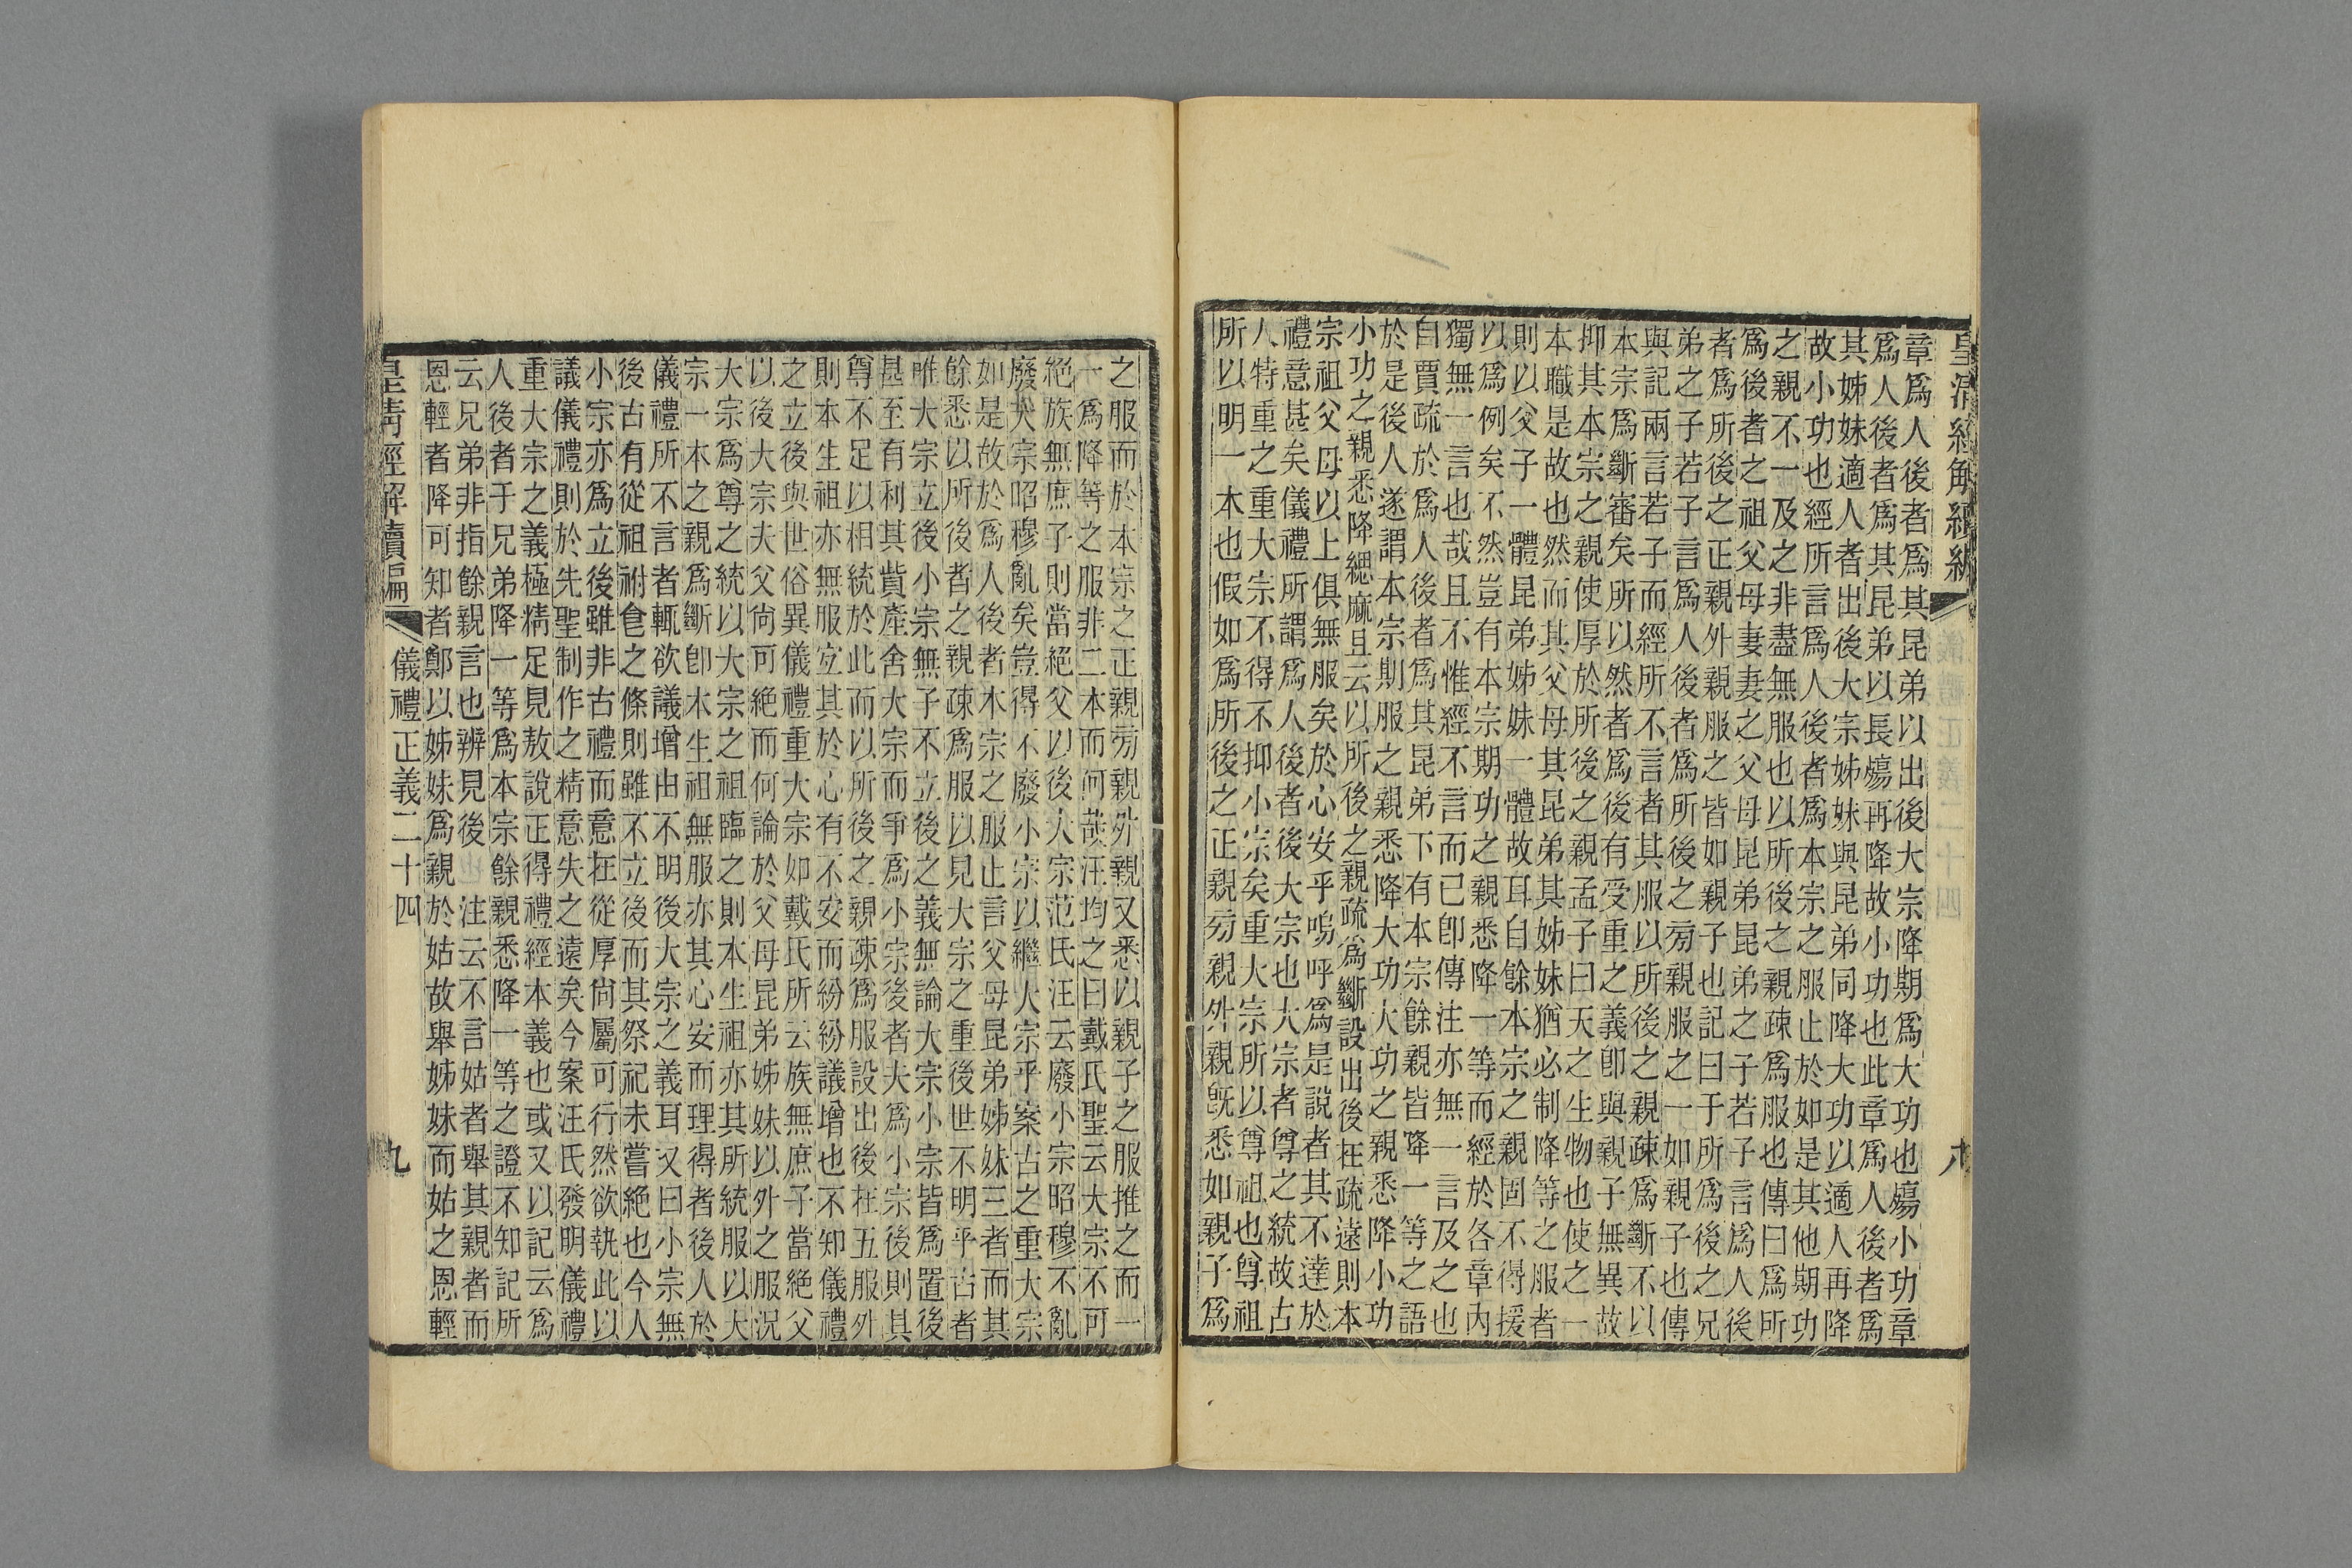 皇清經解續編
八
章爲人後者爲其昆弟以出後大宗降期爲大功也殤小功章
爲人後者爲其昆弟以長殤再降故小功也此章爲人後者爲
其姊妹適人者出後大宗姊妹與昆弟同降大功以適人再降
故小功也經所言爲人後者爲本宗之服止於如是其他期功
之親不一及之非盡無服也以所後之親疎爲服也傳曰爲所
爲後者之祖父母妻妻之父母昆弟昆弟之子若子言爲人後
者爲所後之正親外親服之皆如親子也記曰于所爲後之兄
弟之子若子言爲人後者爲所後之旁親服之一如親子也傳
與記兩言若子而經所不言者其服以所後之親疎爲斷不以
本宗爲斷審矣所以然者爲後有受重之義卽與親子無異故
抑其本宗之親使厚於所後之親孟子曰天之生物也使之一
本職是故也然而其父母其昆弟其姊妹猶必制降等之服者
則以父子一體昆弟姊妹一體故耳自餘本宗之親固不得援
以爲例矣不然豈有本宗期功之親悉降一等而經於各章內
獨無一言也哉且不惟經不言而已卽傳注亦無一言及之也
自賈疏於爲人後者爲其昆弟下有本宗餘親皆降一等之語
於是後人遂謂本宗則服之親悉降大功大功之親悉降小功
小功之親悉降緦麻且云以所後之親疏爲斷設出後在疏遠則本
宗祖父母以上俱無服矣於心安乎嗚呼爲是說者其不達於
禮意甚矣儀禮所謂爲人後者後大宗也大宗者尊之統故古
人特重之重大宗不得不抑小宗矣重大宗所以尊祖也尊祖
所以明一本也假如爲所後之正親旁親外親旣悉如親子爲
之服而於本宗之正親旁親外親又悉以親子之服推之而一
一爲降等之服非二本而何哉汪均之曰戴氏聖云大宗不可
絕族無庶子則當絕父以後大宗范氏汪云廢小宗昭穆不亂
廢大宗昭穆亂矣豈得不廢小宗以繼大宗乎案古之重大宗
如是故於爲人後者本宗之服止言父母昆弟姊妹三者而其
餘悉以所後者之親疎爲服以見大宗之重後世不明乎古者
唯大宗立後小宗無子不立後之義無論大宗小宗皆爲置後
甚至有利其貲產舍大宗而爭爲小宗後者夫爲小宗後則其
尊不足以相統於此而以所後之親疎爲服設出後在五服外
則本生祖亦無服宜其於心有不安而紛紛議增也不知儀禮
之立後與世俗異儀禮重大宗如戴氏所云族無庶子當絕父
以後大宗夫父尙可絕而何論於父母昆弟姊妹以外之服況
大宗爲尊之統以大宗之祖臨之則本生祖亦其所統服以大
宗一本之親爲斷卽本生祖無服亦其心安而理得者後人於
儀禮所不言者輒欲議增由不明後大宗之義耳又曰小宗無
後古有從祖祔食之條則雖不立後而其祭祀未嘗絕也今人
小宗亦爲立後雖非古禮而意在從厚尙屬可行然欲執此以
議儀禮則於先聖制作之精意失之遠矣今案汪氏發明儀禮
重大宗之義極精足見敖說正得禮經本義也或又以記云爲
人後者于兄弟降一等爲本宗餘親悉降一等之證不知記所
云兄弟非指餘親言也辨見後　注云不言姑者舉其親者而
恩輕者降可知者鄭以姊妹爲親於姑故舉姊妹而姑之恩輕
皇清經解續編
儀禮正義二十四
九